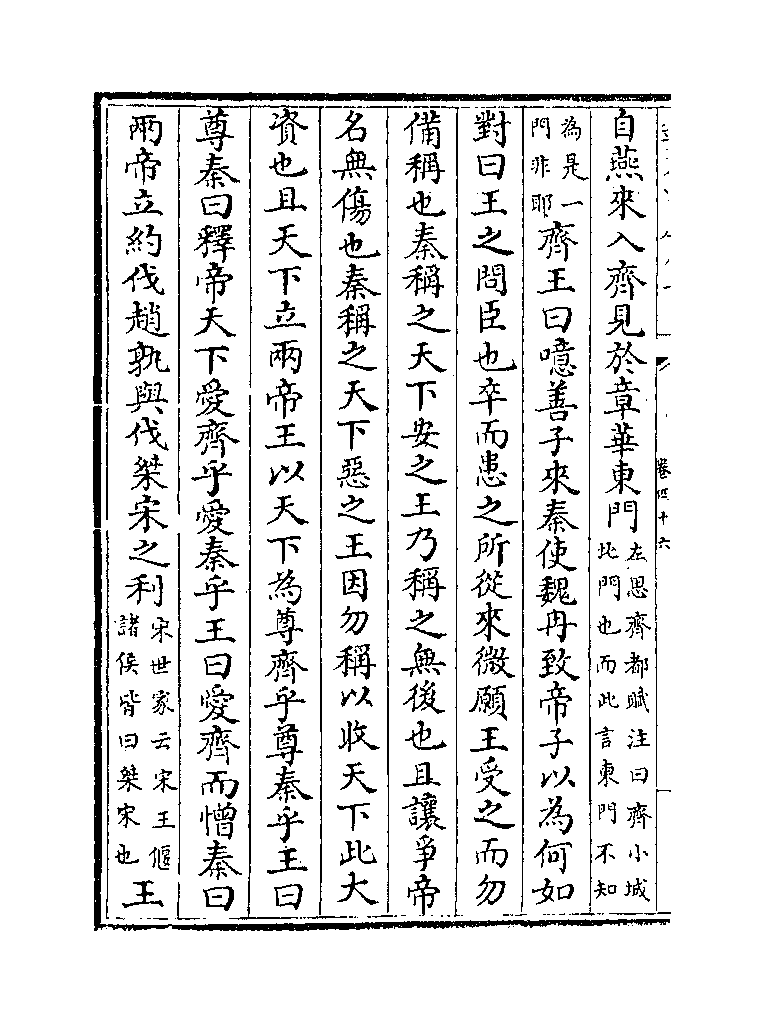 卷四十六
自燕來入齊見於章華東門左思齊都賦注曰齊小城北門也而此言東門不知
為是一門非耶齊王曰噫善子來秦使魏冉致帝子以為何如
對曰王之問臣也卒而患之所從來微願王受之而勿
備稱也秦稱之天下安之王乃稱之無後也且讓爭帝
名無傷也秦稱之天下惡之王因勿稱以收天下此大
資也且天下立兩帝王以天下為尊齊乎尊秦乎王曰
尊秦曰釋帝天下愛齊乎愛秦乎王曰愛齊而憎秦曰
兩帝立約伐趙孰與伐桀宋之利宋世家云宋王偃諸侯皆曰桀宋也王